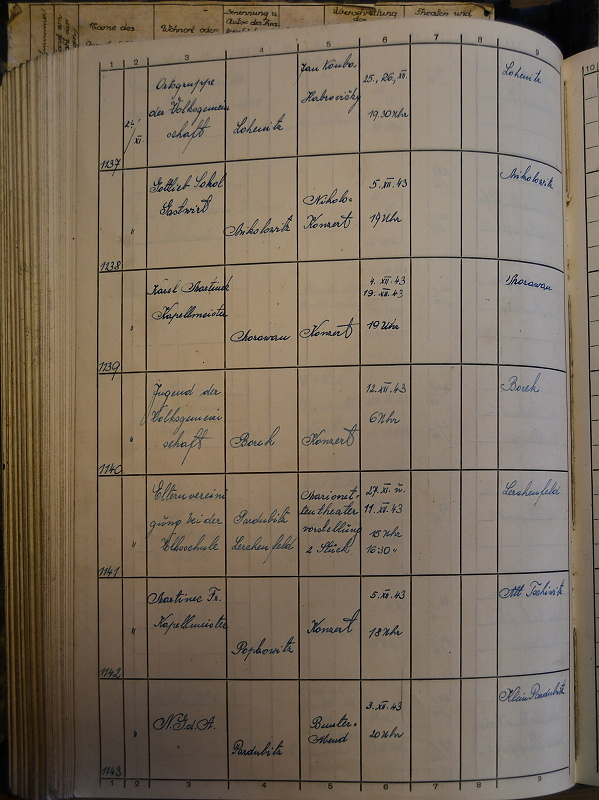 Name des
Wohnort oder
Theater und
1 2 3 4 5 6 7 8 9
10
Ortsgruppe
der Volksgemein
schaft
24/XI.
Lohenitz
Jan Kouba
25., 26., XII.
19.30 Uhr
Lohenitz
1137
Gottlieb Sokol
Gastwirt
"
Mikolowitz
Nikolo=
Konzert
5. XII. 43
19 Uhr
Mikolowitz
1138
Karel Martinek
Kapellmeister
"
Morawan
Konzert
4. XII. 43
19. XII. 43
19 Uhr
Morawan
1139
Jugend der
Volksgemein
schaft
"
Borek
Konzert
12. XII. 43
6 Uhr
Borek
1140
Elternvereini
gung bei der
Volksschule
"
Pardubitz
Lerchenfeld
Marionet=
tentheater
vorstellung
2 Stück
27. XI. u.
11. XII. 43
15 Uhr
16 30 "
Lerchenfeld
1141
Martinec Fr.
Kapellmeister
"
Popkowitz
Konzert
5. XII. 43
18 Uhr
Alt
1142
N.G.d.A.
"
Pardubitz
Bunter=
Abend
3. XII. 43
20 Uhr
Klein Pardubitz
1143
1 2 3 4 5 6 7 8 9